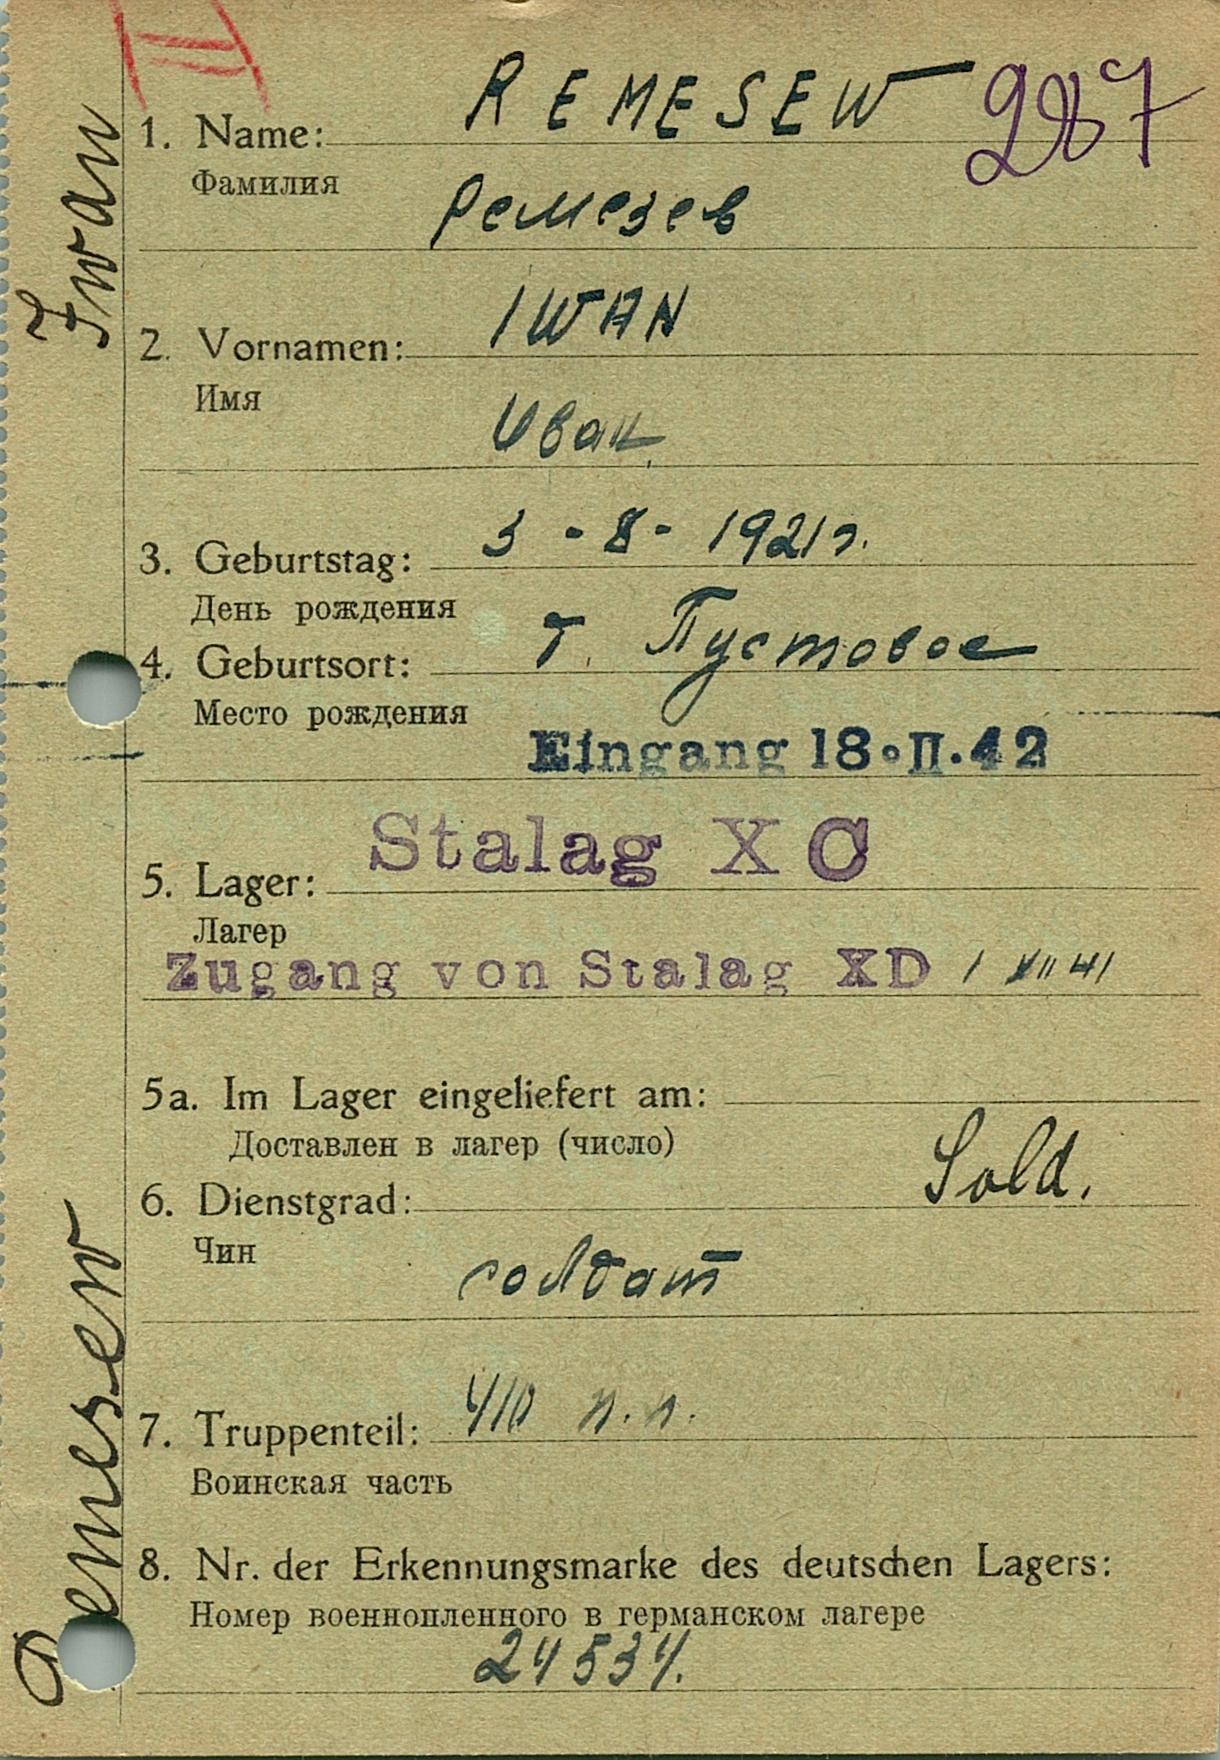 IV
REMESEW 287
1. Name:
Фамилия
Ремезев
IWAN
2. Vornamen:
Имя
Иван
3. Geburtstag: 3-8-1921г.
День рождения
4. Geburtsort: д. Пустовое
Место рождения
Eingang 18.II.42
Stalag X C
5. Lager:
Лагер
Zugang von Stalag XD 1 XII 41
5a. Im Lager eingeliefert am:
Доставлен в лагер (число)
6. Dienstgrad: Sold.
Чин
солдат
7. Truppenteil: 410 п.п.
Воинская часть
8. Nr. der Erkennungsmarke des deutschen Lagers:
Номер военнопленного в германском лагере
24534.
Remesew Iwan